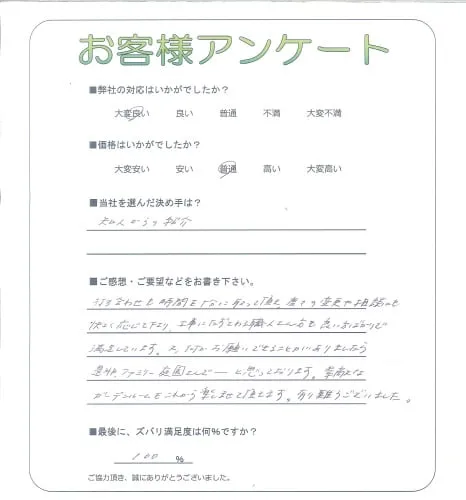 お客様アンケート
■弊社の対応はいかがでしたか？
大変良い 良い 普通 不満 大変不満
■価格はいかがでしたか？
大変安い 安い 普通 高い 大変高い
■当社を選んだ決め手は？
知人からの紹介
■ご感想・ご要望などをお書き下さい。
打ち合わせも時間を十分に取って頂き、度々の変更や相談にも
快く応じて下さり、工事にたずさわる職人さん方も良い方ばかりで
満足しています。又、何かお願いできることがありましたら
是非、ファミリー庭園さんで－と思っております。素敵な
ガーデンルームをこれから楽しませて頂きます。有り難うございました。
■最後に、ズバリ満足度は何％ですか？
100 %
ご協力頂き、誠にありがとうございました。